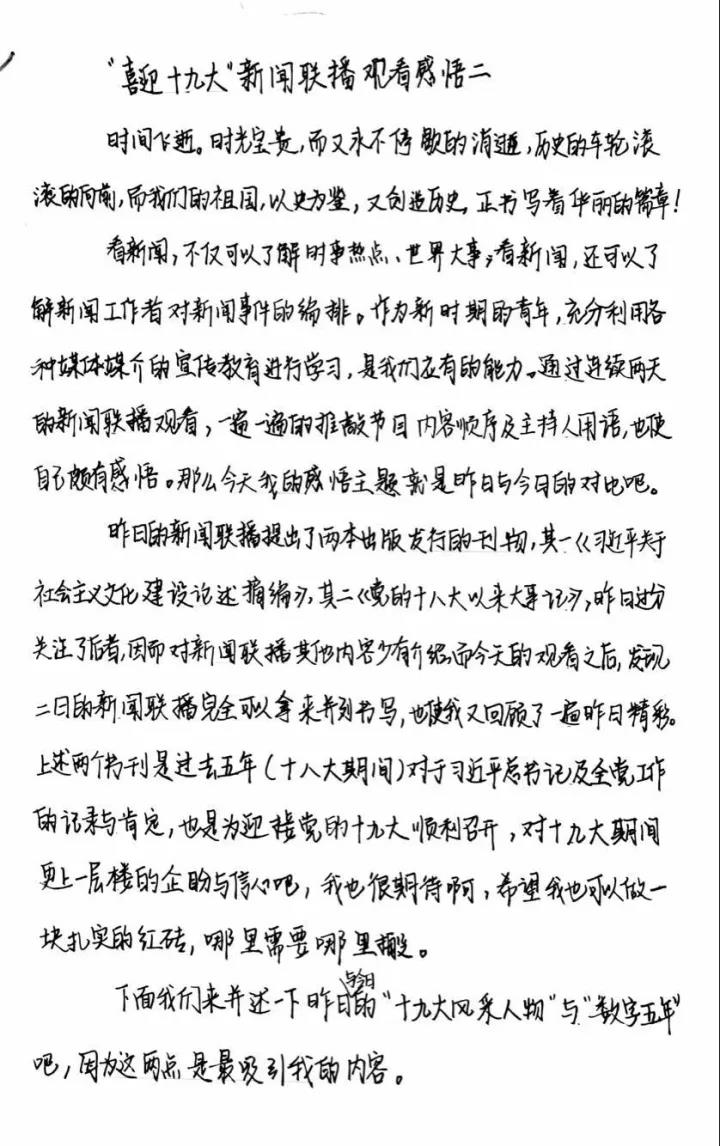 “喜迎十九大”新闻联播观看感悟二
时间飞逝。时光宝贵,而又永不停歇的消逝,历史的车轮滚
滚的向前,而我们的祖国,以史为鉴,又创造历史,正书写着华丽的篇章!
看新闻,不仅可以了解时事热点、世界大事;看新闻,还可以了
解新闻工作者对新闻事件的编排。作为新时期的青年,充分利用各
种媒体媒介的宣传教育进行学习,是我们应有的能力。通过连续两天
的新闻联播观看,一遍一遍的推敲节目内容顺序及主持人用语,也使
自己颇有感悟。那么今天我的感悟主题就是昨日与今日的对比吧。
昨日的新闻联播提出了两本出版发行的刊物,其一《习近平关于
社会主义文化建设论述摘编》,其二《党的十八大以来大事记》,昨日过分
关注了后者,因而对新闻联播其他内容少有介绍,而今天的观看之后,发现
二日的新闻联播完全可以拿来并列书写,也使我又回顾了一遍昨日精彩。
上述两个书刊是过去五年(十八大期间)对于习近平总书记及全党工作
的记录与肯定,也是为迎接党的十九大顺利召开,对十九大期间
更上一层楼的企盼与信心吧,我也很期待啊,希望我也可以做一
块扎实的红砖,哪里需要哪里搬。
下面我们来并述一下昨日与今日的“十九大风采人物”与“数字五年”
吧,因为这两点是最吸引我的内容。